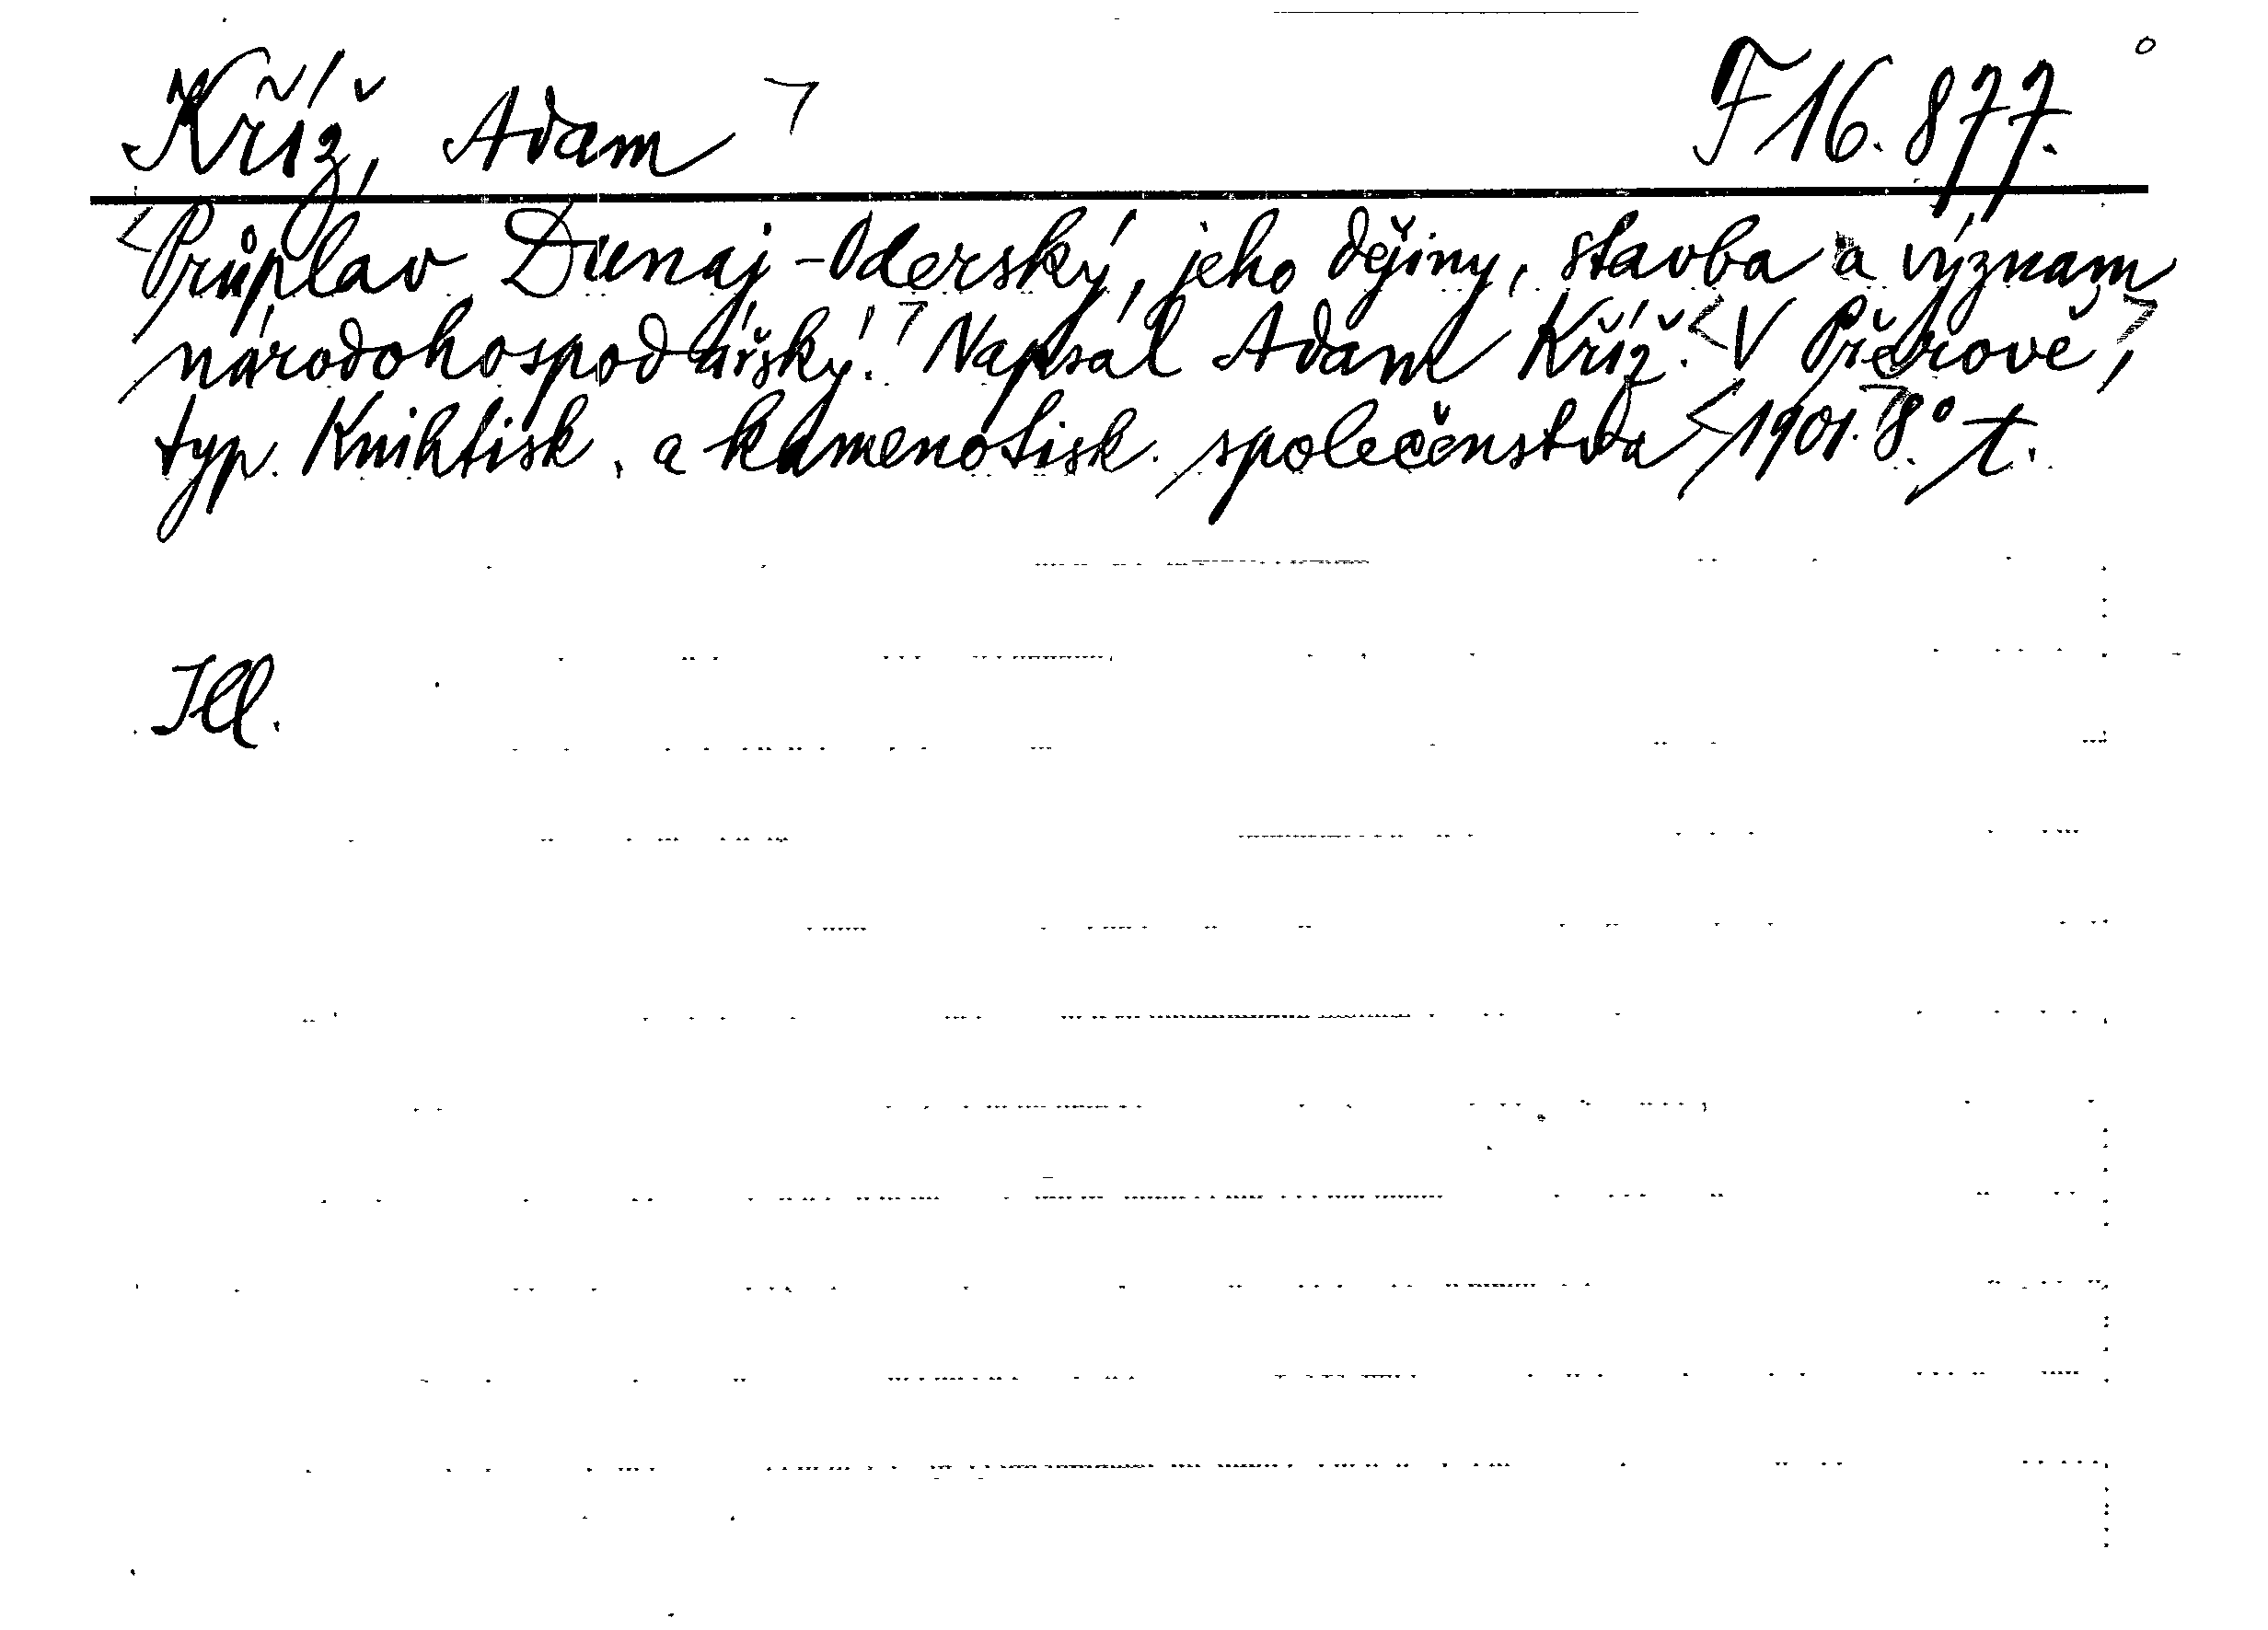 Kříž, Adam F 16.877.
Průplav Dunaj-Oderský, jeho dějiny, stavba a význam
národohospodářský. Napsal Adam Kříž. V Přerově,
typ. Knihtisk. a kamenotisk. společenstva 1901. 8° t.
Ill.